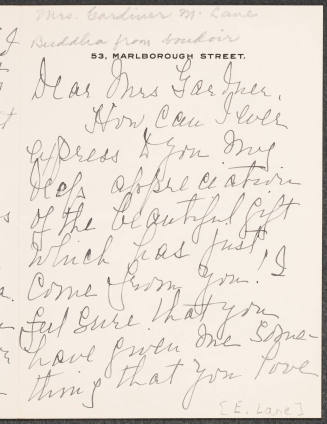 Mrs. Gardiner M. Lane
Buddha from boudoir
53, MARLBOROUGH STREET.
Dear Mrs Gardner.
How can I ever
express to you my
deep appreciation
of the beautiful gift
which has just
come from you! I
feel sure that you
have given me some-
thing that you love
[E. Lane]